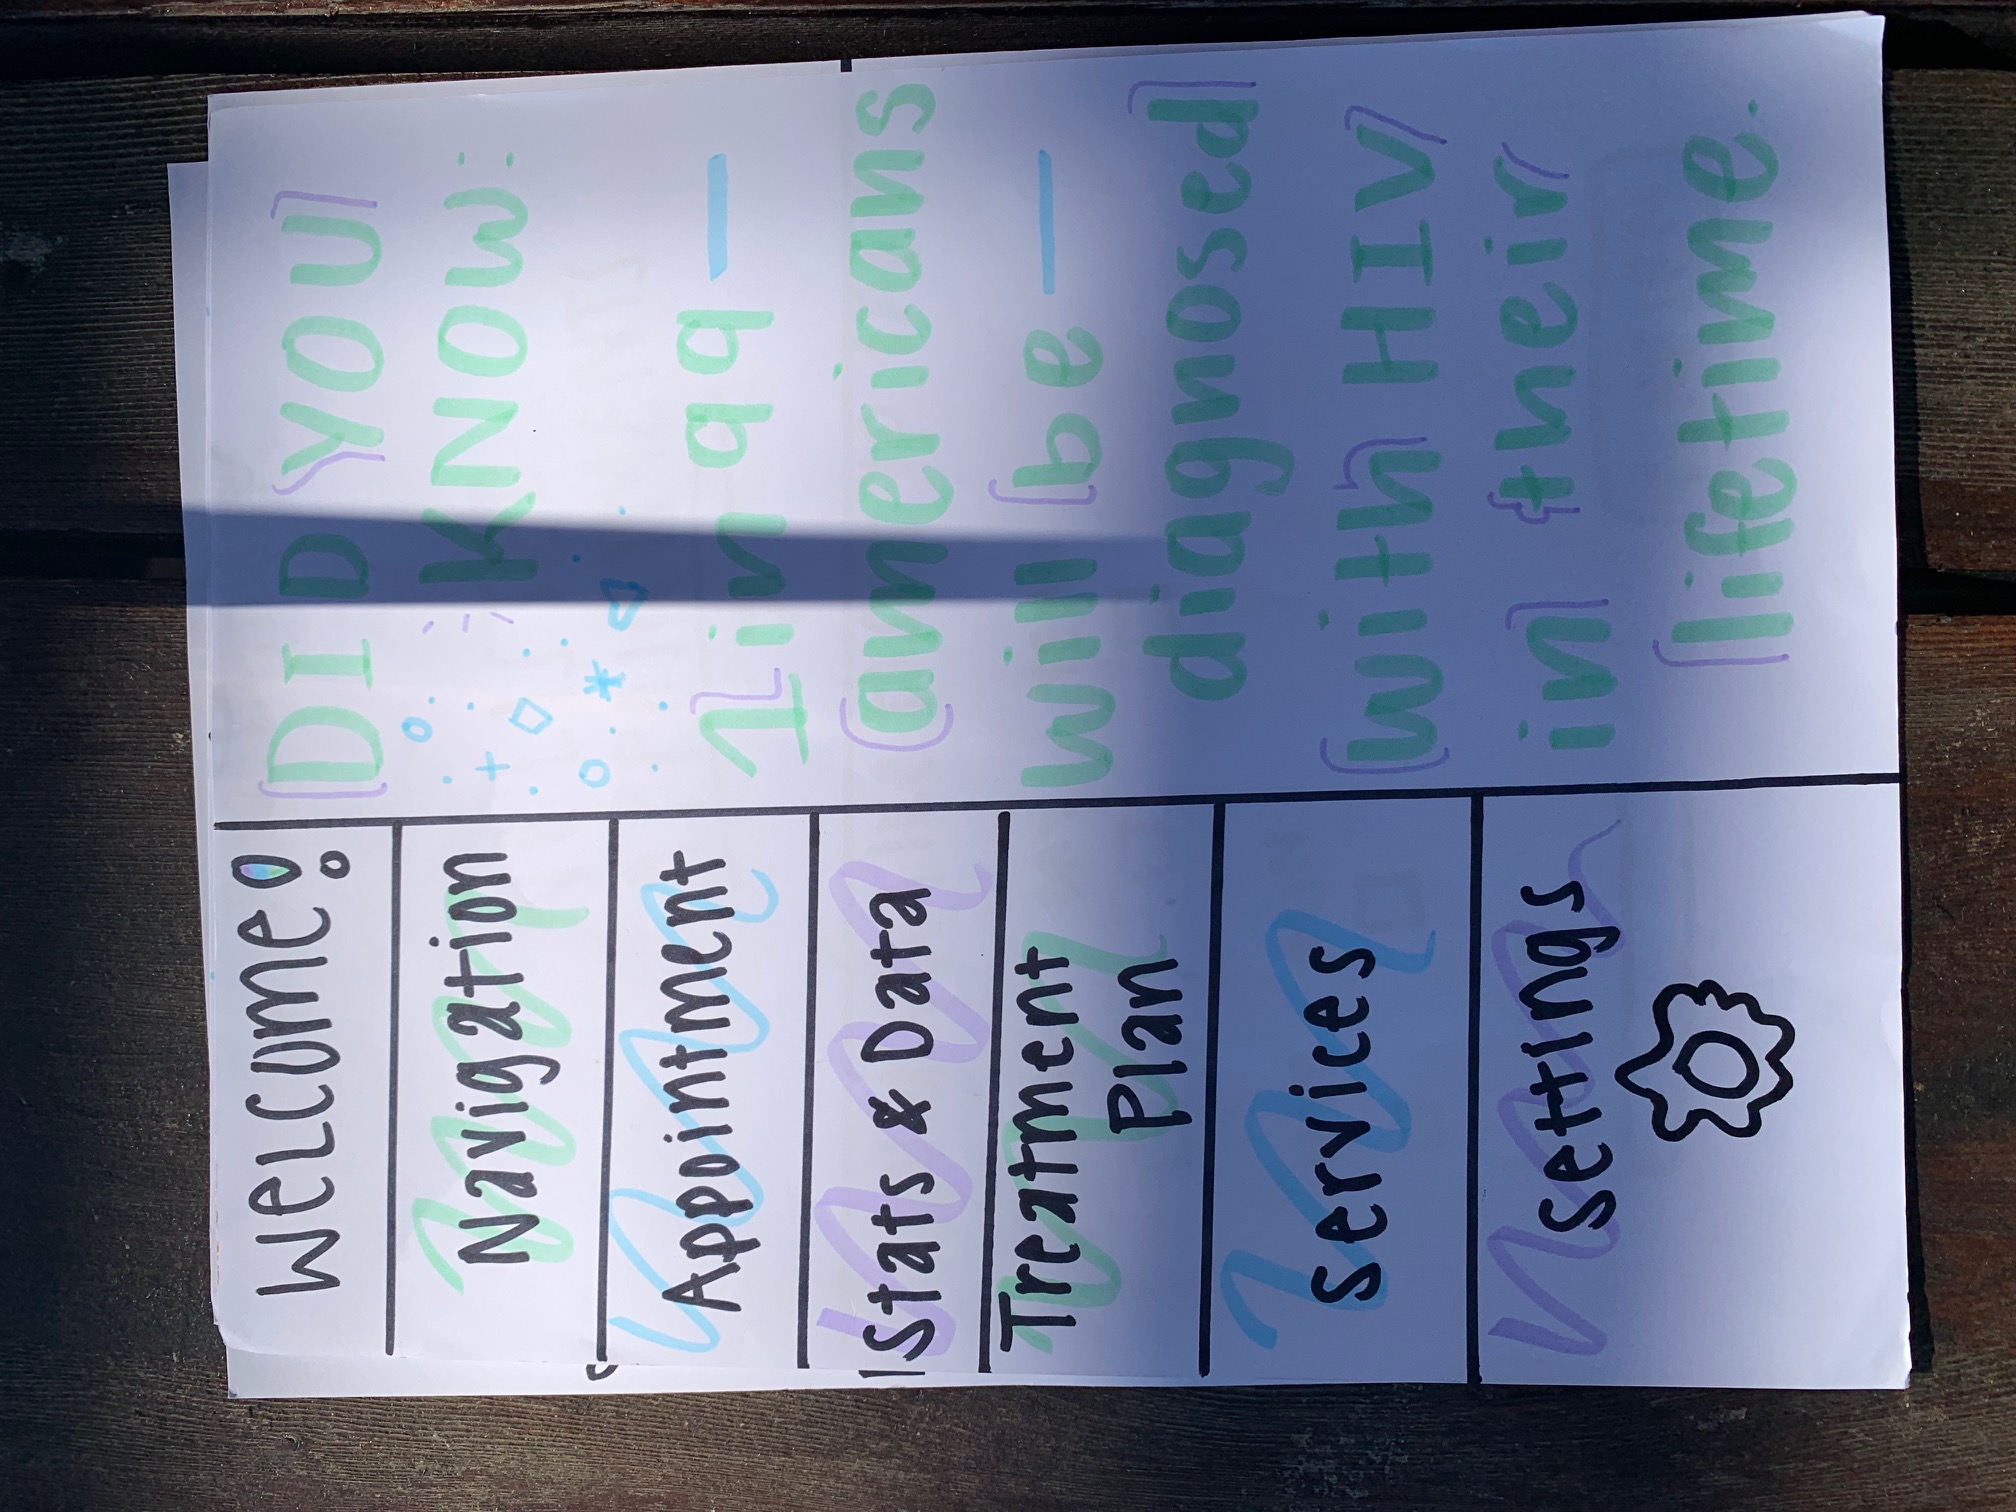 Welcome!
Navigation
Appointment
Stats & Data
Treatment
Plan
services
settings
DID YOU
KNOW:
1 in 99 —
americans
will be —
diagnosed
with HIV
in their
lifetime.